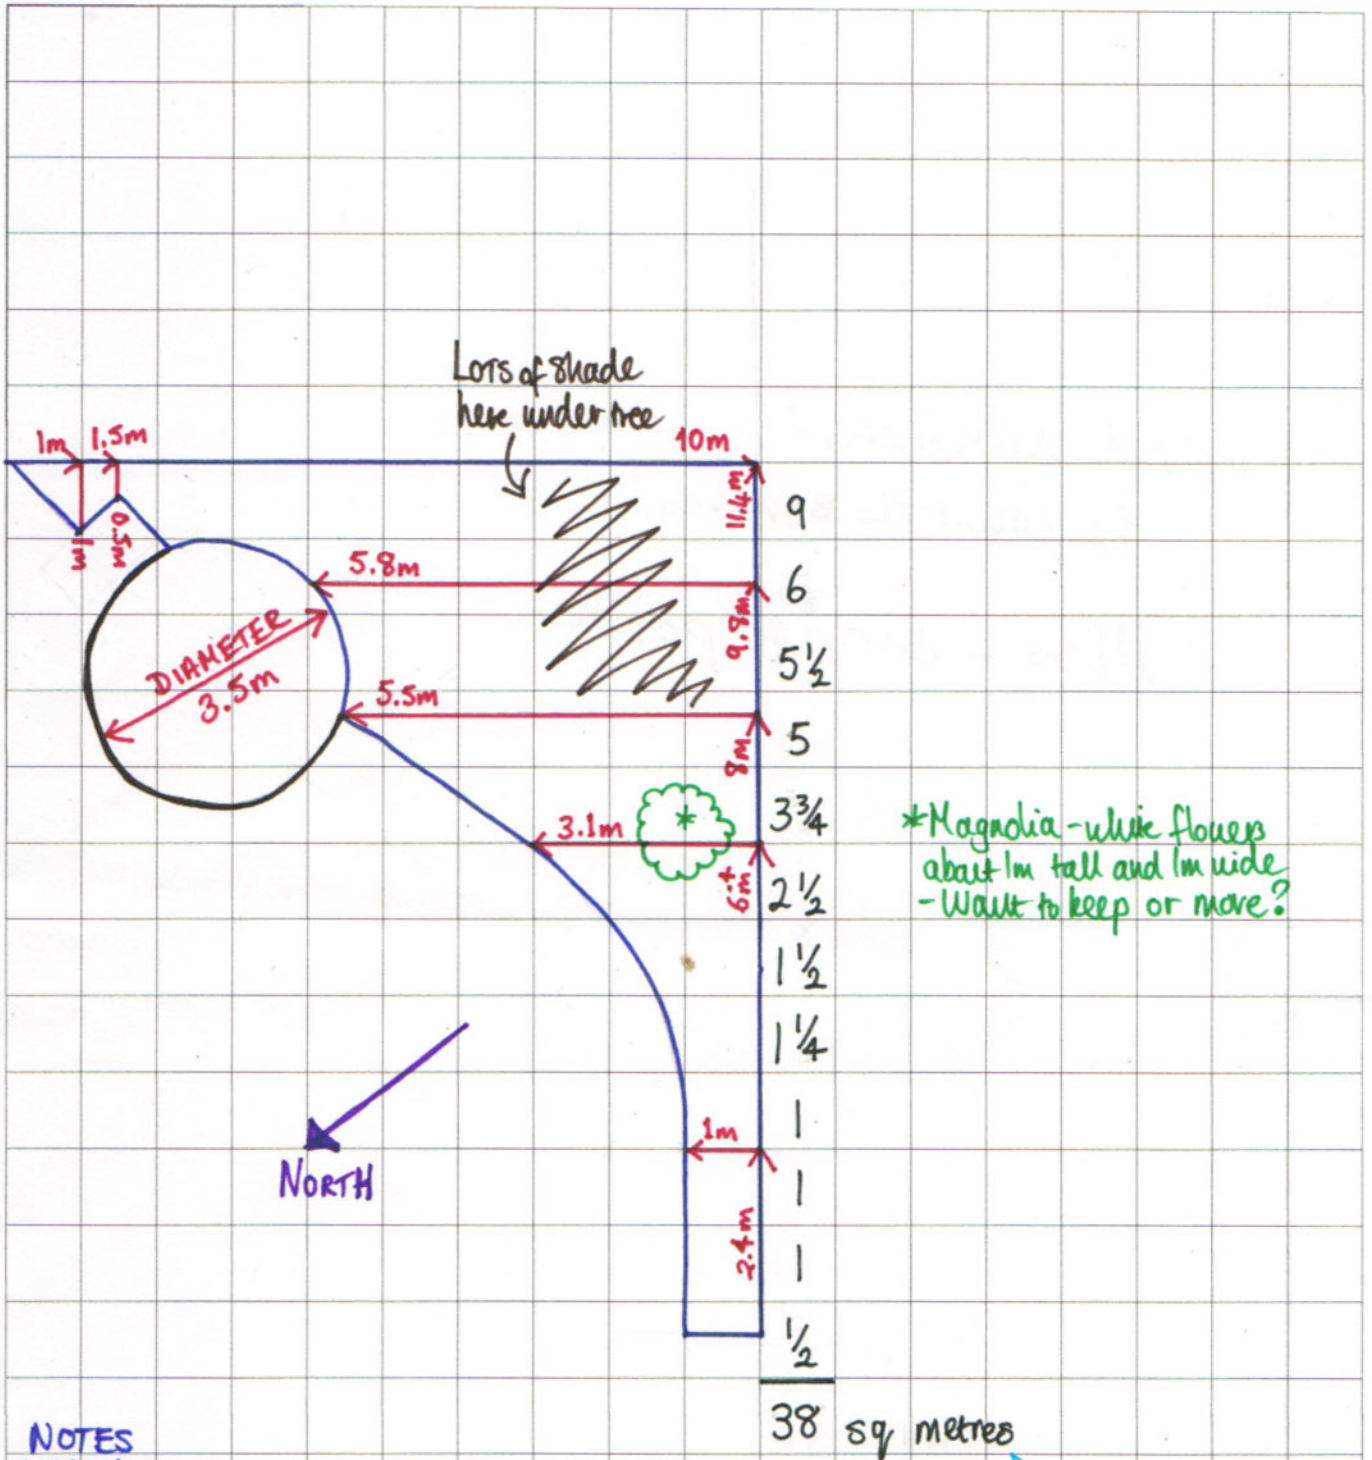 Lots of shade
here under tree
10m
1m
1.5m
1m
0.5m
11.4m
9
5.8m
6
9.8m
DIAMETER
3.5m
5½
5.5m
5
8m
3¾
3.1m
*
6.4m
2½
*Magnolia - white flowers
about 1m tall and 1m wide
- Want to keep or move?
1½
1¼
1
1m
NORTH
1
2.4m
1
½
38 sq metres
NOTES